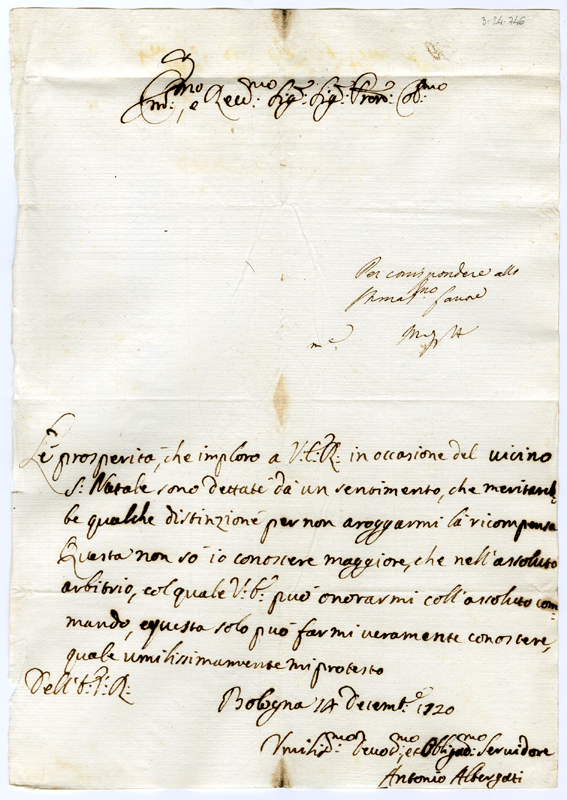 3-24-746
Em:mo, e Reu:mo Sig:r Sig:r Pron: Col:mo
Per corrispondere allo
favore
Le prosperità, che imploro a V:E:R: in occasione del vicino
S: Natale sono dettate da un sentimento, che meritareb
be qualche distinzione per non arogarmi la ricompensa
Questa non sò io conoscere maggiore, che nell'assoluto
arbitrio, col quale V:E: può onorarmi coll'assoluto com
mando, e questa solo può farmi veramente conoscere,
quale umilissimamente mi protesto
Dell'E:V:R:
Bologna 14 Decemb:e 1720
Umiliss:mo Deuot:mo, et Obligat:mo Seruidore
Antonio Albergati